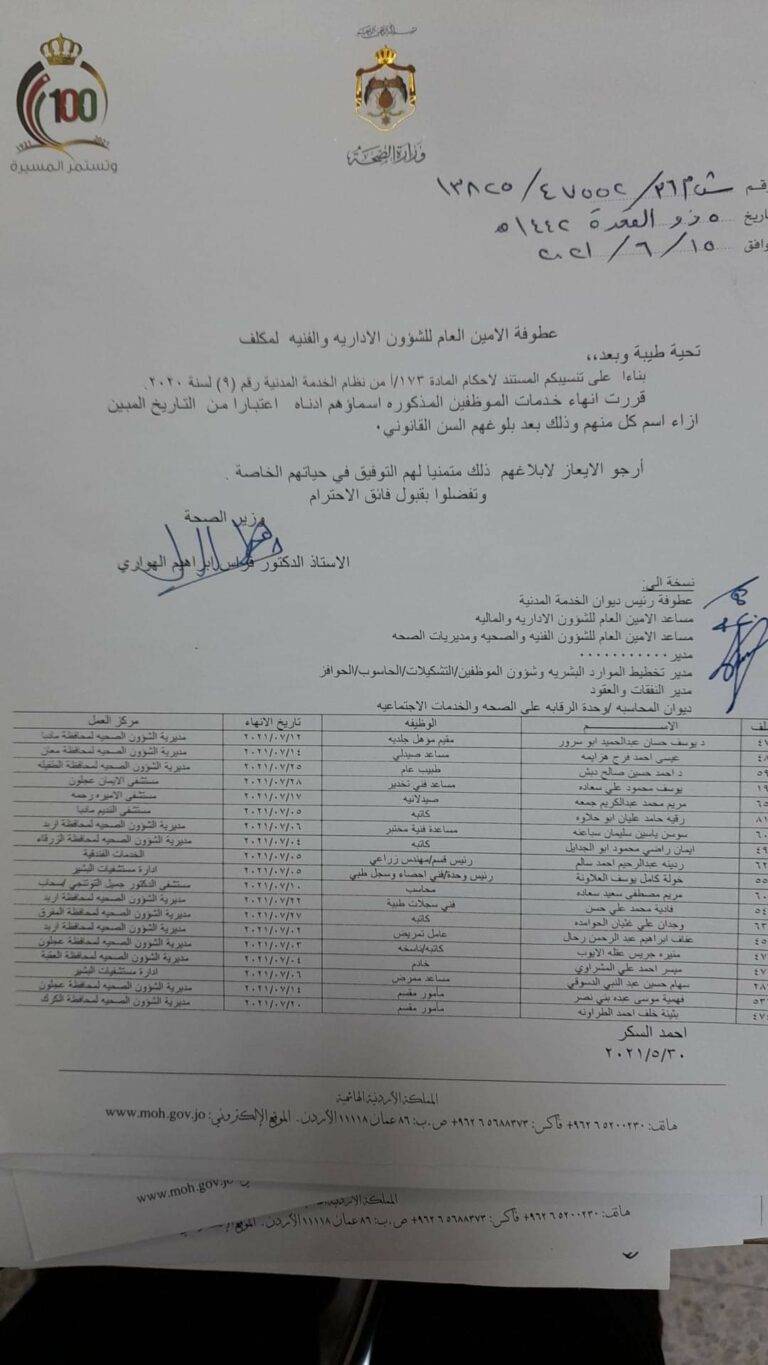 100
وتستمر المسيرة
وزارة الصحة
رقم ش م ٢٦/٤٧٥٥٢/١٣٨٢٥
اريخ ٥ ذو القعدة ١٤٤٢ هـ
وافق ١٥/٦/٢٠٢١
عطوفة الامين العام للشؤون الاداريه والفنيه لمكلف
تحية طيبة وبعد،،
بناءا على تنسيبكم المستند لاحكام المادة ١٧٣/أ من نظام الخدمة المدنية رقم (٩) لسنة ٢٠٢٠.
قررت انهاء خدمات الموظفين المذكوره اسماؤهم ادناه اعتبارا من التاريخ المبين
ازاء اسم كل منهم وذلك بعد بلوغهم السن القانوني.
أرجو الايعاز لابلاغهم ذلك متمنيا لهم التوفيق في حياتهم الخاصة .
وتفضلوا بقبول فائق الاحترام
وزير الصحة
الاستاذ الدكتور فراس ابراهيم الهواري
نسخة الى:
عطوفة رئيس ديوان الخدمة المدنية
مساعد الامين العام للشؤون الاداريه والماليه
مساعد الامين العام للشؤون الفنيه والصحيه ومديريات الصحه
مدير ...........
مدير تخطيط الموارد البشريه وشؤون الموظفين/التشكيلات/الحاسوب/الحوافز
مدير النفقات والعقود
ديوان المحاسبه /وحدة الرقابه على الصحه والخدمات الاجتماعيه
لف الاســـــم الوظيفه تاريخ الانهاء مركز العمل
٤٧ د يوسف حسان عبدالحميد ابو سرور مقيم مؤهل جلديه ٢٠٢١/٠٧/١٢ مديرية الشؤون الصحيه لمحافظة مادبا
٤٨ عيسى احمد فرج هزايمه مساعد صيدلي ٢٠٢١/٠٧/١٤ مديرية الشؤون الصحيه لمحافظة معان
٥٩ د احمد حسين صالح دبش طبيب عام ٢٠٢١/٠٧/٢٥ مديرية الشؤون الصحيه لمحافظة الطفيله
١٩ يوسف محمود علي سعاده مساعد فني تخدير ٢٠٢١/٠٧/٢٨ مستشفى الايمان عجلون
٦٥ مريم محمد عبدالكريم جمعه صيدلانيه ٢٠٢١/٠٧/١٧ مستشفى الاميره رحمه
٨١ رقيه حامد عليان ابو حلاوه كاتبه ٢٠٢١/٠٧/٠٥ مستشفى النديم مادبا
٦٠ سوسن ياسين سليمان سباعنه مساعدة فنية مختبر ٢٠٢١/٠٧/٠٦ مديرية الشؤون الصحيه لمحافظة اربد
٤٩ ايمان راضي محمود ابو الجدايل كاتبه ٢٠٢١/٠٧/٠٤ مديرية الشؤون الصحيه لمحافظة الزرقاء
٦٢ ردينه عبدالرحيم احمد سالم رئيس قسم/مهندس زراعي ٢٠٢١/٠٧/٠٥ الخدمات الفندقية
٥٥ خولة كامل يوسف العلاونة رئيس وحدة/فني احصاء وسجل طبي ٢٠٢١/٠٧/٠٥ ادارة مستشفيات البشير
٦٠ مريم مصطفى سعيد سعاده محاسب ٢٠٢١/٠٧/١٠ مستشفى الدكتور جميل التوتنجي /سحاب
٥٤ فادية محمد علي حسن فني سجلات طبية ٢٠٢١/٠٧/٢٢ مديرية الشؤون الصحيه لمحافظة اربد
٦٣ وجدان علي عليان الحوامده كاتبه ٢٠٢١/٠٧/٢٧ مديرية الشؤون الصحيه لمحافظة المفرق
٤٥ عفاف ابراهيم عبد الرحمن رحال عامل تمريض ٢٠٢١/٠٧/٠٢ مديرية الشؤون الصحيه لمحافظة اربد
٤٧ منيره جريس عطه الايوب كاتبه/ناسخه ٢٠٢١/٠٧/٠٣ مديرية الشؤون الصحيه لمحافظة عجلون
٤٧ ميسر احمد علي المشراوي خادم ٢٠٢١/٠٧/٠٤ مديرية الشؤون الصحيه لمحافظة العقبة
٢٨٧ سهام حسين عبد النبي الدسوقي مساعد ممرض ٢٠٢١/٠٧/٠٦ ادارة مستشفيات البشير
٥٣ فهمية موسى عبده بني نصر مأمور مقسم ٢٠٢١/٠٧/١٤ مديرية الشؤون الصحيه لمحافظة عجلون
٤٧٤ بثينة خلف احمد الطراونه مأمور مقسم ٢٠٢١/٠٧/٢٠ مديرية الشؤون الصحيه لمحافظة الكرك
احمد السكر
٢٠٢١/٥/٣٠
المملكة الأردنية الهاشمية
هاتف: ٥٢٠٠٢٣٠ ٦ ٩٦٢+ فاكس: ٥٦٨٨٣٧٣ ٦ ٩٦٢+ ص.ب: ٨٦ عمان ١١١١٨ الأردن. الموقع الإلكتروني: www.moh.gov.jo
www.moh.gov.jo
المملكة الأردنية
هاتف: ٥٢٠٠٢٣٠ ٦ ٩٦٢+ فاكس: ٥٦٨٨٣٧٣ ٦ ٩٦٢+ ص.ب: ٨٦ عمان ١١١١٨ الأردن. الموقع